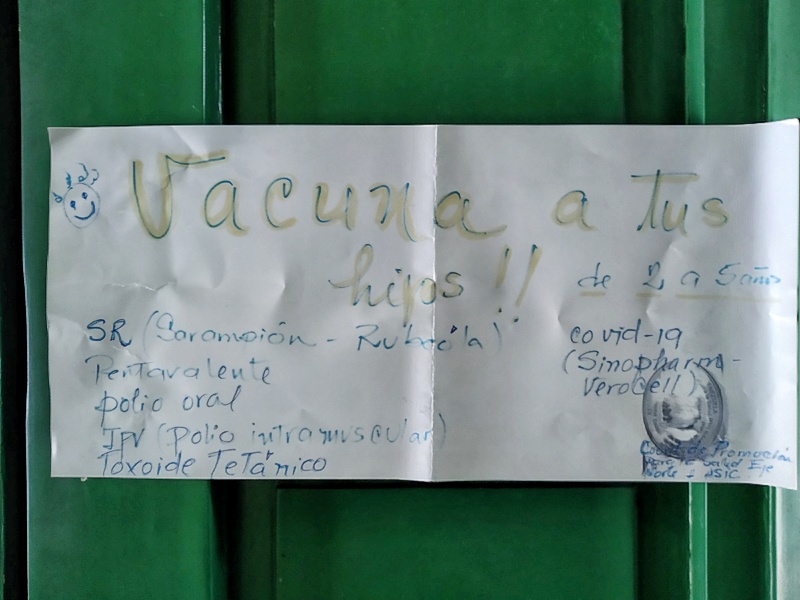 Vacuna a Tus
hijos!!
de 2 a 5 años
SR (Sarampión - Rubeóla)
Pentavalente
polio oral
IPV (polio intramuscular)
Toxoide Tetánico
covid-19
(Sinopharm-
Verocell)
de Promoción
para la Salud Eje
Norte - ASIC